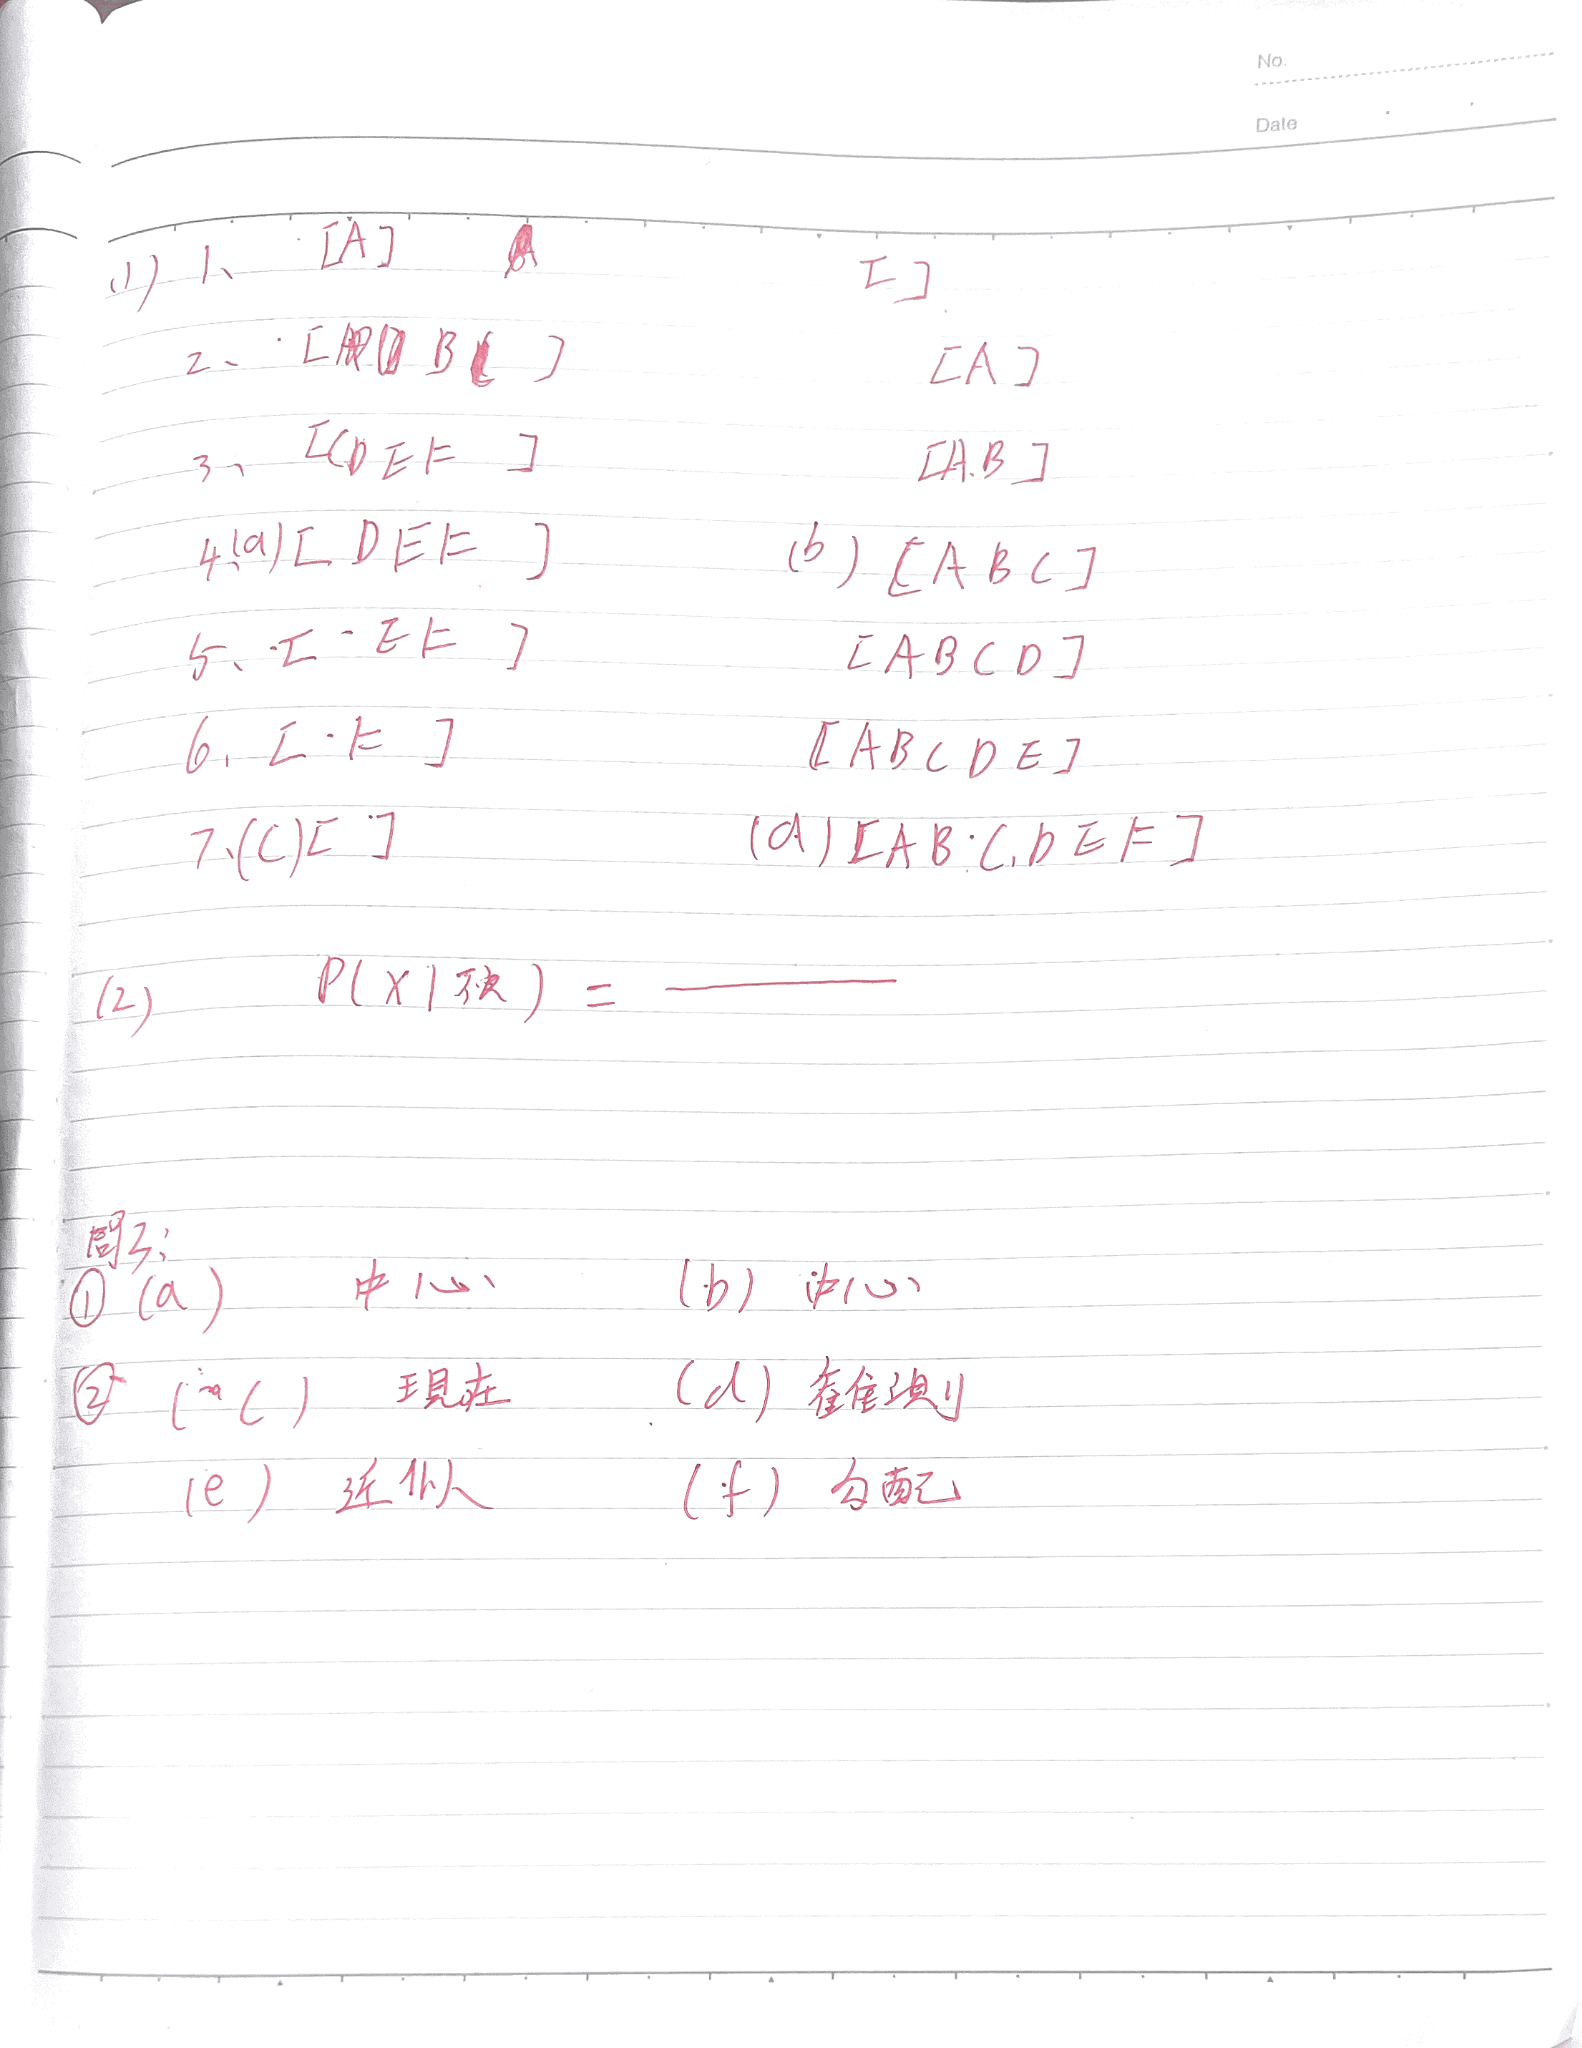 No.
Date
(1) 1、 [A] []
2、 [B] [A]
3、 [CDEF] [A.B]
4、(a)[DEF] (b)[ABC]
5、[EF] [ABCD]
6、[F] [ABCDE]
7、(C)[] (d)[ABCDEF]
(2) P(X|) =
問3:
① (a) 中心 (b) 中心
② (c) 現在 (d) 観測
(e) 近似 (f) 勾配